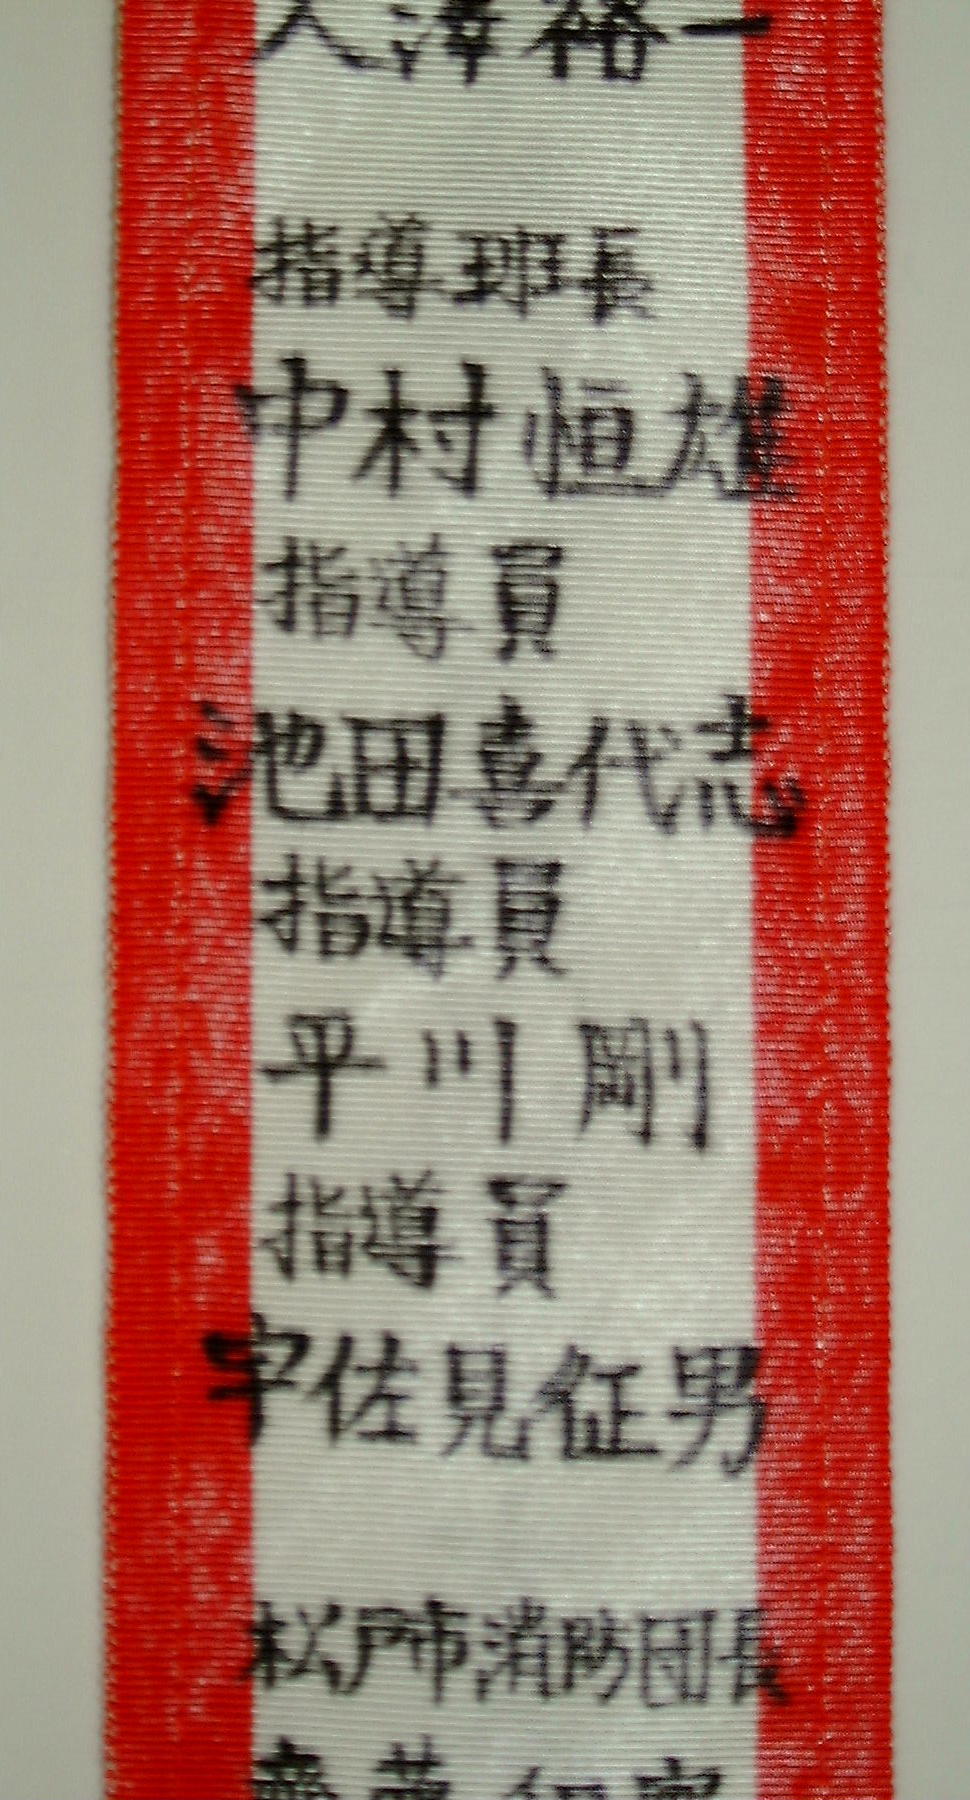 澤裕一
指導班長
中村恒雄
指導員
池田喜代志
指導員
平川剛
指導員
宇佐見征男
松戸市消防団長